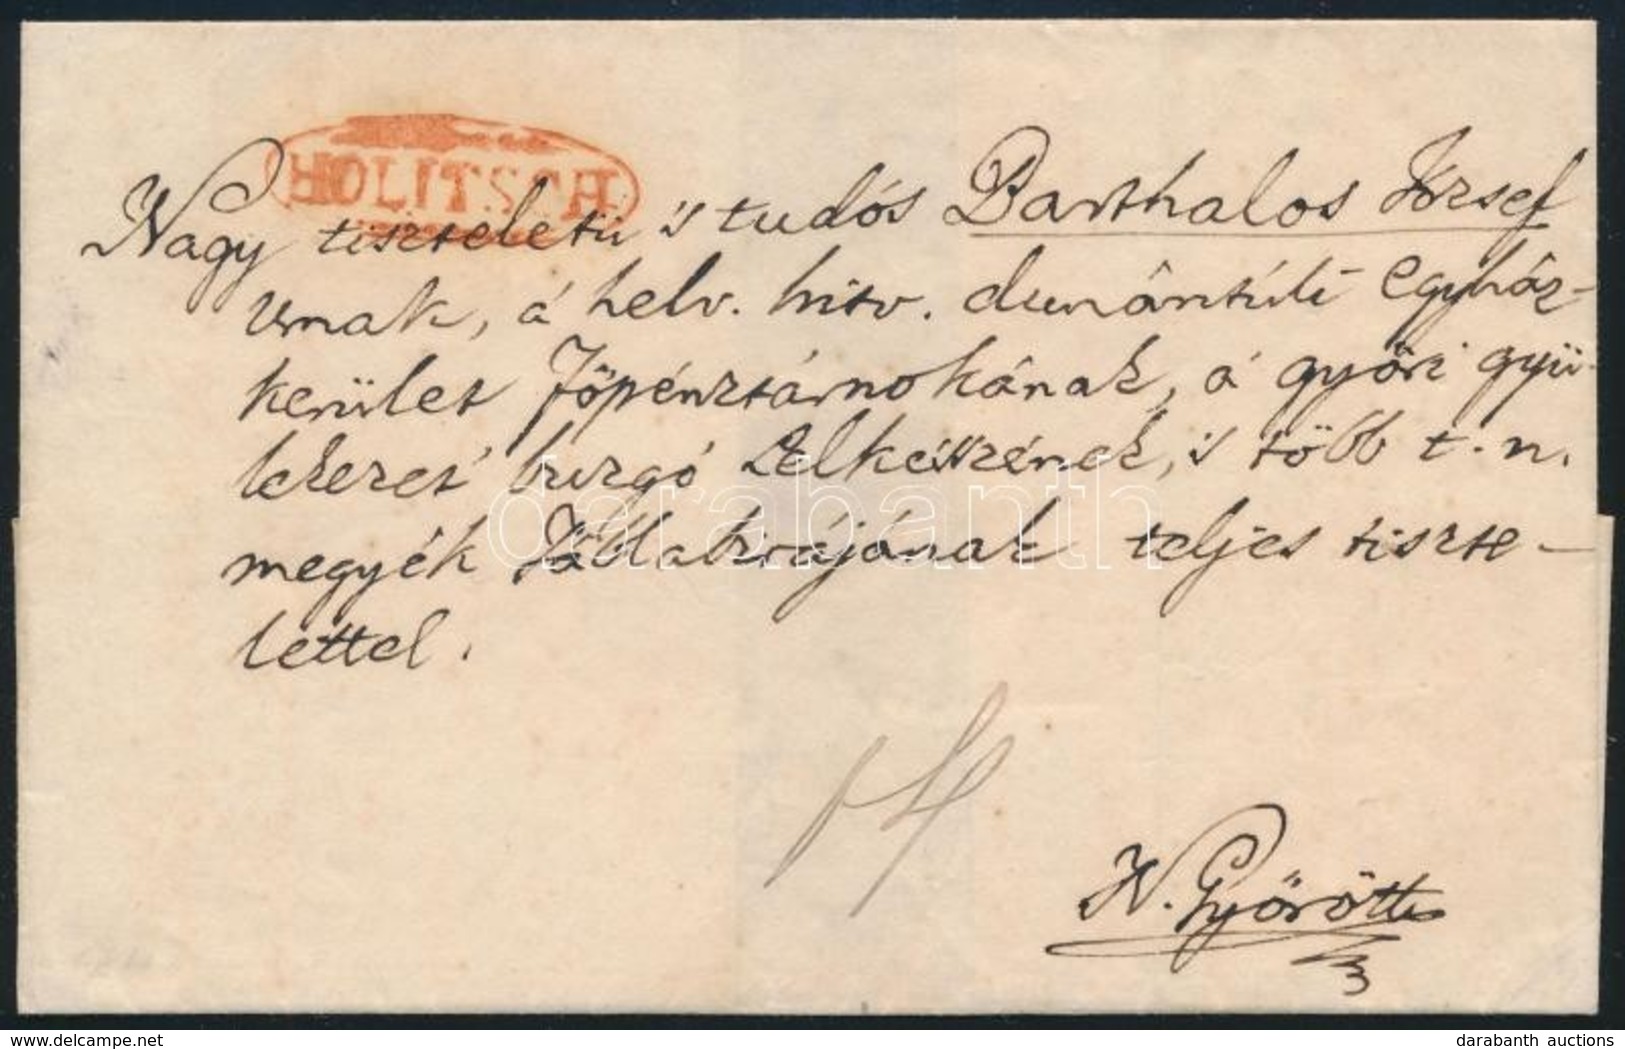 HOLITSCH
Nagy tiszteletü 's tudós Barthalos Jósef
Urnak, á helv. hitv. dunántúli egyház-
kerület Föpénztárnokának, á györi gyü-
lekezet buzgó Lelkésszének, 's több t. n.
megyék Táblabirájának teljes tiszte-
lettel.
N. Györött
darabanth
www.delcampe.net
darabanth auctions